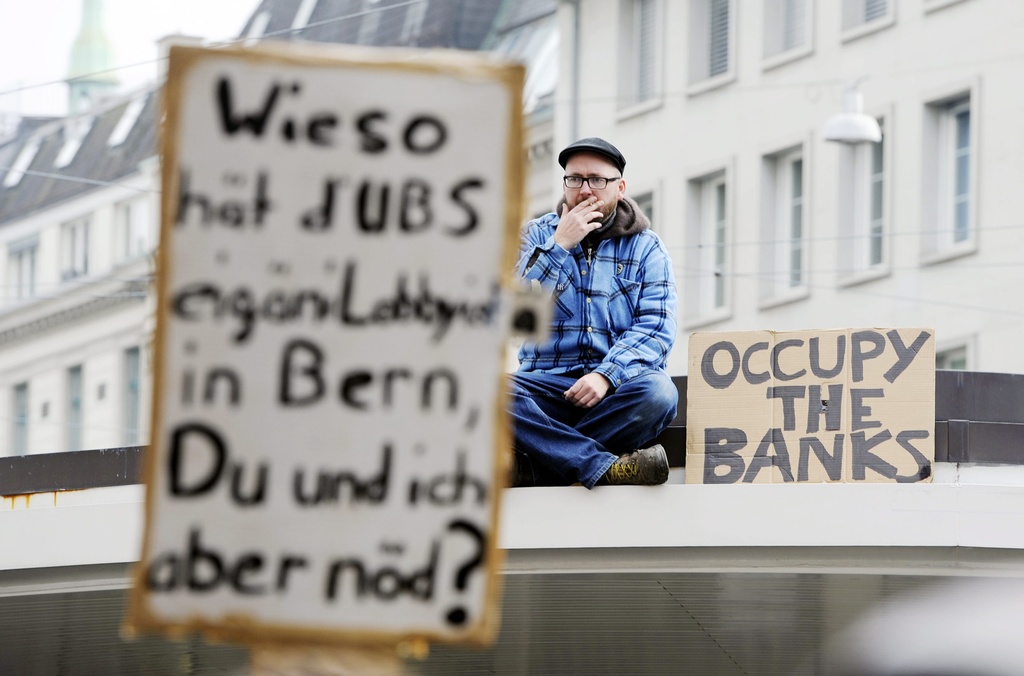 Wieso
hät d'UBS
eigäni Lobbyist
in Bern,
Du und ich
aber nöd?
OCCUPY
THE
BANKS